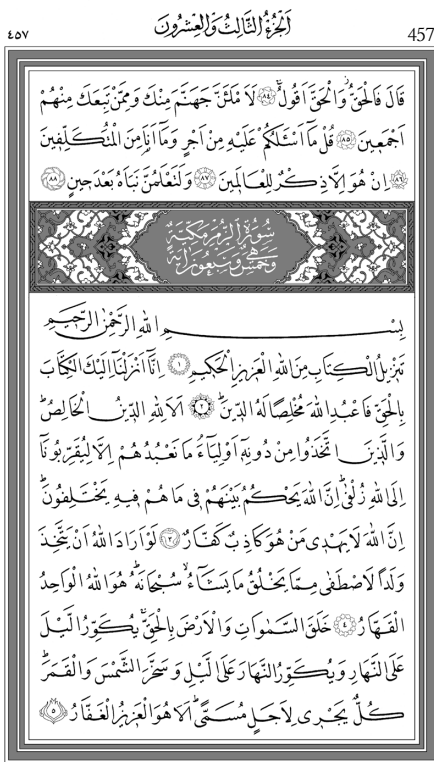 ٤٥٧ اَلْجُزْءُ الثَّالِثُ وَالْعِشْرُونَ 457
قَالَ فَالْحَقُّۘ وَالْحَقَّ اَقُولُۚ ﴿٨٤﴾ لَاَمْلَـَٔنَّ جَهَنَّمَ مِنْكَ وَمِمَّنْ تَبِعَكَ مِنْهُمْ
اَجْمَعٖينَ ﴿٨٥﴾ قُلْ مَٓا اَسْـَٔلُكُمْ عَلَيْهِ مِنْ اَجْرٍ وَمَٓا اَنَا۬ مِنَ الْمُتَكَلِّفٖينَ
﴿٨٦﴾ اِنْ هُوَ اِلَّا ذِكْرٌ لِلْعَالَمٖينَ ﴿٨٧﴾ وَلَتَعْلَمُنَّ نَبَاَهُ بَعْدَ حٖينٍ ﴿٨٨﴾
سُورَةُ الزُّمَرِ مَكِّيَّةٌ
وَهِيَ خَمْسٌ وَسَبْعُونَ اٰيَةً
بِسْمِ اللّٰهِ الرَّحْمٰنِ الرَّحٖيمِ
تَنْزٖيلُ الْكِتَابِ مِنَ اللّٰهِ الْعَزٖيزِ الْحَكٖيمِ ﴿١﴾ اِنَّٓا اَنْزَلْنَٓا اِلَيْكَ الْكِتَابَ
بِالْحَقِّ فَاعْبُدِ اللّٰهَ مُخْلِصًا لَهُ الدّٖينَؕ ﴿٢﴾ اَلَا لِلّٰهِ الدّٖينُ الْخَالِصُؕ
وَالَّذٖينَ اتَّخَذُوا مِنْ دُونِهٖٓ اَوْلِيَٓاءَۢ مَا نَعْبُدُهُمْ اِلَّا لِيُقَرِّبُونَٓا
اِلَى اللّٰهِ زُلْفٰىؕ اِنَّ اللّٰهَ يَحْكُمُ بَيْنَهُمْ فٖي مَا هُمْ فٖيهِ يَخْتَلِفُونَؕ
اِنَّ اللّٰهَ لَا يَهْدٖي مَنْ هُوَ كَاذِبٌ كَفَّارٌ ﴿٣﴾ لَوْ اَرَادَ اللّٰهُ اَنْ يَتَّخِذَ
وَلَدًا لَاصْطَفٰى مِمَّا يَخْلُقُ مَا يَشَٓاءُۙ سُبْحَانَهُؕ هُوَ اللّٰهُ الْوَاحِدُ
الْقَهَّارُ ﴿٤﴾ خَلَقَ السَّمٰوَاتِ وَالْاَرْضَ بِالْحَقِّۚ يُكَوِّرُ الَّيْلَ
عَلَى النَّهَارِ وَيُكَوِّرُ النَّهَارَ عَلَى الَّيْلِ وَسَخَّرَ الشَّمْسَ وَالْقَمَرَؕ
كُلٌّ يَجْرٖي لِاَجَلٍ مُسَمًّىؕ اَلَا هُوَ الْعَزٖيزُ الْغَفَّارُ ﴿٥﴾